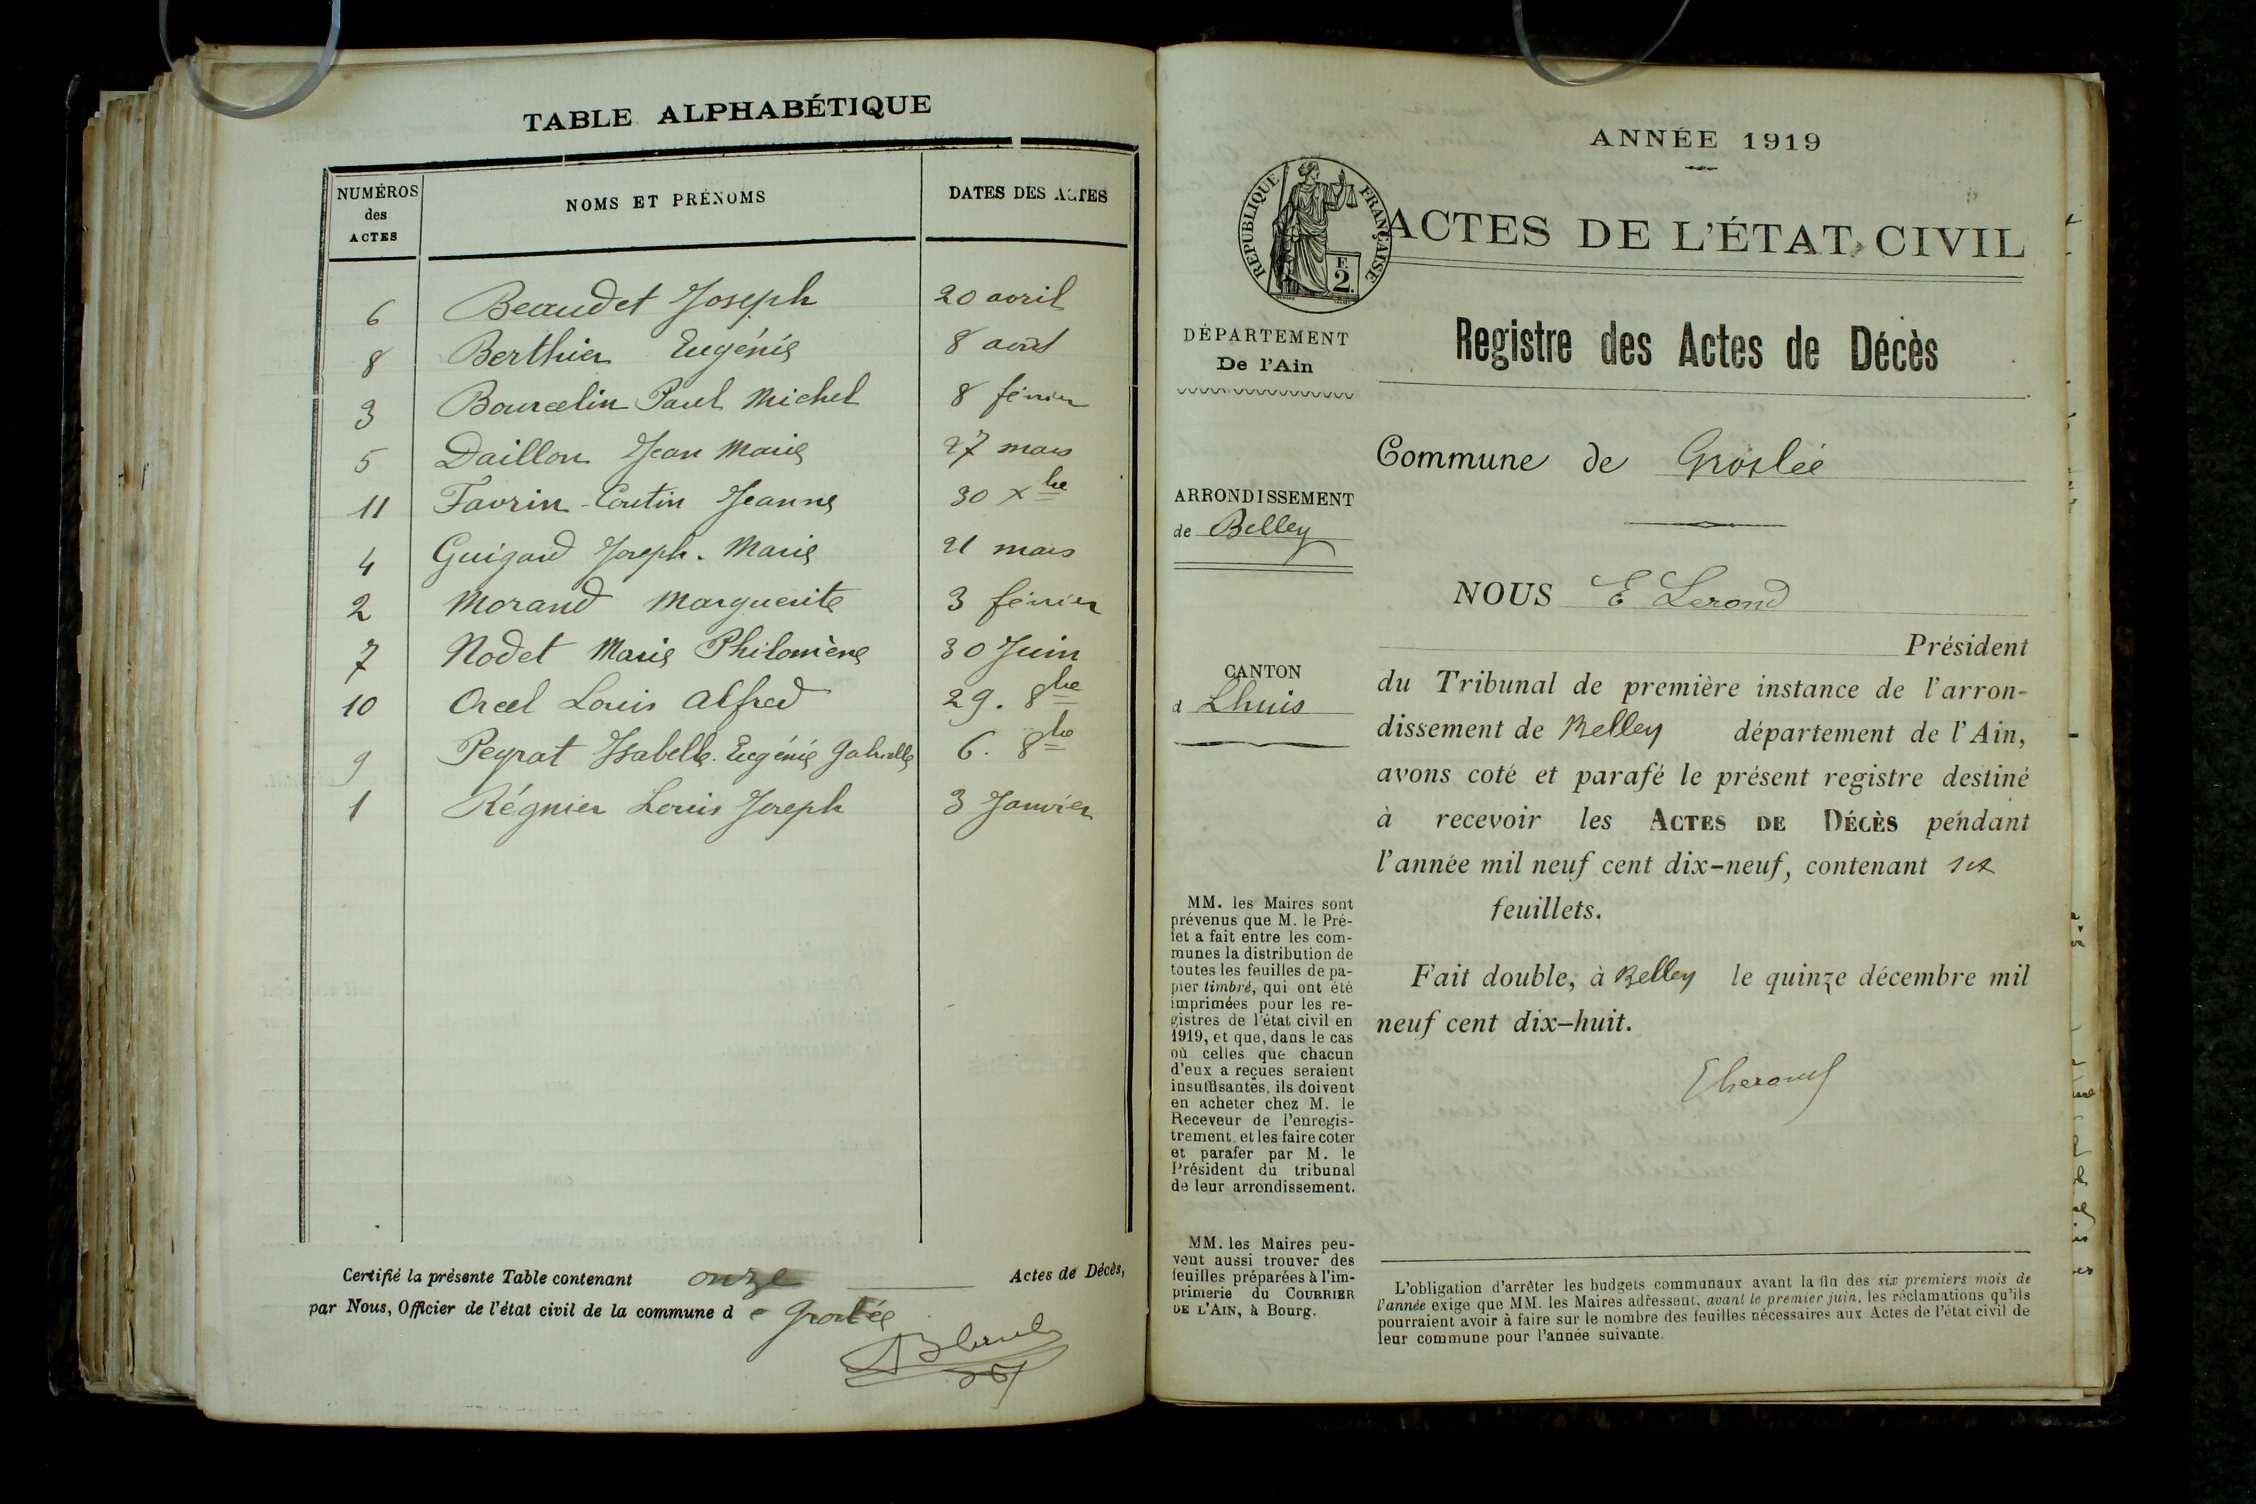 TABLE ALPHABÉTIQUE
NUMÉROS des ACTES
NOMS ET PRÉNOMS
DATES DES ACTES
6 Beaudet Joseph 20 avril
8 Berthier Eugénie 8 août
3 Bourcelin Paul Michel 8 février
5 Daillon Jean Marie 27 mars
11 Favrin-Coutin Jeanne 30 Xbre
4 Guigard Joseph. Marie 21 mars
2 Morand Marguerite 3 février
7 Nodet Marie Philomène 30 Juin
10 Orcel Louis Alfred 29. 8bre
9 Peyrat Isabelle. Eugénie Gabrielle 6. 8bre
1 Régnier Louis Joseph 3 Janvier
Certifié la présente Table contenant onze Actes de Décès,
par Nous, Officier de l'état civil de la commune de Groslée
ANNÉE 1919
RÉPUBLIQUE FRANÇAISE
F. 2.
ACTES DE L'ÉTAT CIVIL
DÉPARTEMENT
De l'Ain
ARRONDISSEMENT
de Belley
CANTON
d Lhuis
MM. les Maires sont
prévenus que M. le Pré-
fet a fait entre les com-
munes la distribution de
toutes les feuilles de pa-
pier timbré, qui ont été
imprimées pour les re-
gistres de l'état civil en
1919, et que, dans le cas
où celles que chacun
d'eux a reçues seraient
insuffisantes, ils doivent
en acheter chez M. le
Receveur de l'enregis-
trement, et les faire coter
et parafer par M. le
Président du tribunal
de leur arrondissement.
MM. les Maires peu-
vent aussi trouver des
feuilles préparées à l'im-
primerie du COURRIER
DE L'AIN, à Bourg.
Registre des Actes de Décès
Commune de Groslée
NOUS E Lerond
Président
du Tribunal de première instance de l'arron-
dissement de Belley département de l'Ain,
avons coté et parafé le présent registre destiné
à recevoir les ACTES DE DÉCÈS pendant
l'année mil neuf cent dix-neuf, contenant six
feuillets.
Fait double, à Belley le quinze décembre mil
neuf cent dix-huit.
ELerond
L'obligation d'arrêter les budgets communaux avant la fin des six premiers mois de
l'année exige que MM. les Maires adressent, avant le premier juin, les réclamations qu'ils
pourraient avoir à faire sur le nombre des feuilles nécessaires aux Actes de l'état civil de
leur commune pour l'année suivante.